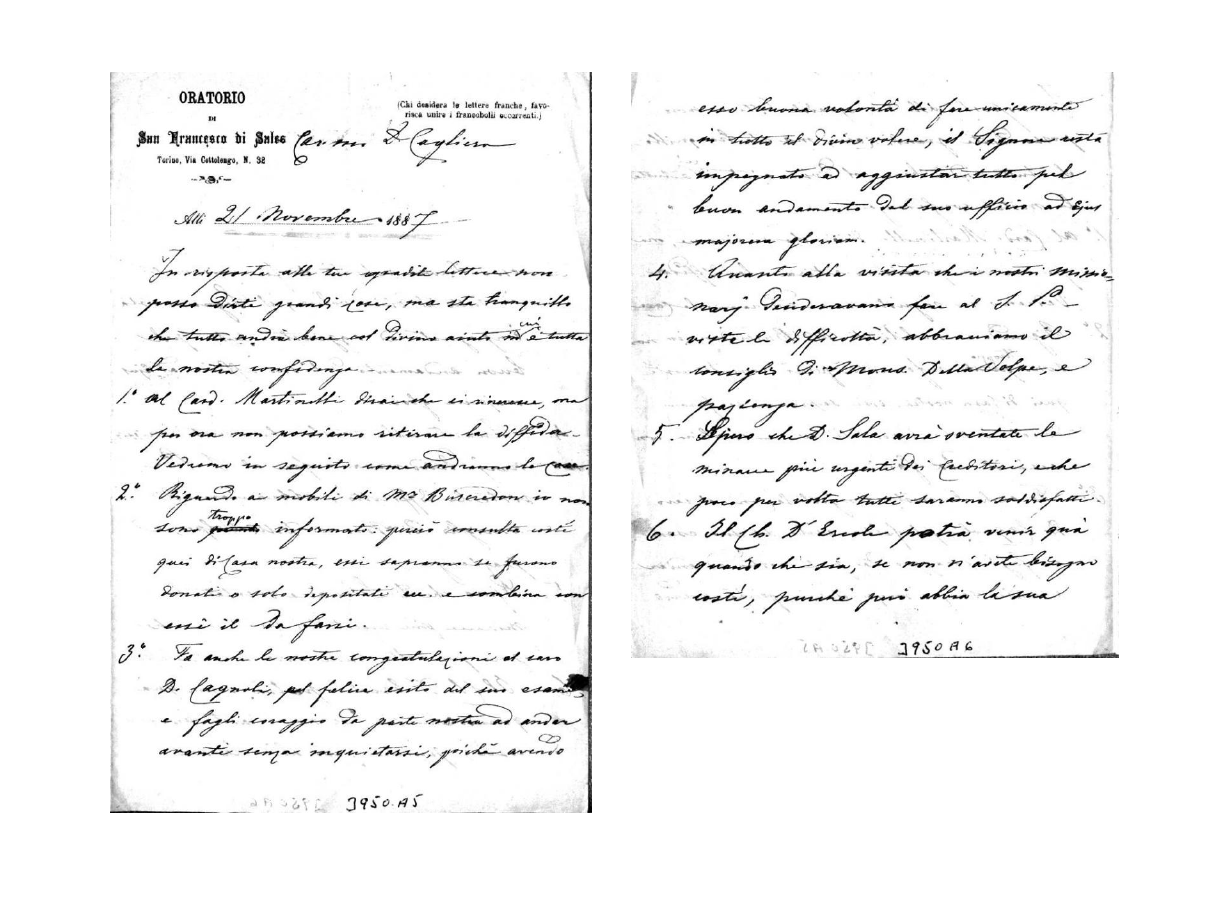 ORATORIO
DI
San Francesco di Sales
Torino, Via Cottolengo, N. 32
(Chi desidera le lettere franche, favo-
risca unire i francobolli occorrenti.)
Car.mo D Cagliero
Alli 21 Novembre 1887
In risposta alle tue gradite lettere non
posso dirti grandi cose, ma sta tranquillo
che tutto andrà bene col divino aiuto in cui è tutta
la nostra confidenza.
1.° Al Card. Martinelli dirai che ci rincresce, ma
per ora non possiamo ritirare la diffida.
Vedremo in seguito come andranno le cose.
2.° Riguardo a mobili di Mr io non
sono troppo informato: perciò consulta costì
quei di Casa nostra, essi sapranno se furono
donati o solo depositati ecc. e combina con
essi il da farsi.
3.° Fa anche le nostre congratulazioni al caro
D. Cagnoli, pel felice esito del suo esame,
e fagli coraggio da parte nostra ad andar
avanti senza inquietarsi, poichè avendo
J950.A5
esso buona volontà di fare unicamente
in tutto il divin volere, il Signore resta
impegnato ad aggiustar tutto pel
buon andamento del suo ufficio ad ejus
majorem gloriam.
4. Quanto alla visita che i nostri missio=
narj desideravano fare al S. P. -
viste le difficoltà, abbracciamo il
consiglio di Mons. Della Volpe, e
pazienza.
5. Spero che D. Sala avrà sventate le
minacce più urgenti dei Creditori, e che
poco per volta tutti saranno soddisfatti.
6. Il Ch. D'Ercole potrà venir quà
quando che sia, se non n'avete bisogno
costì, purchè però abbia la sua
J950A6